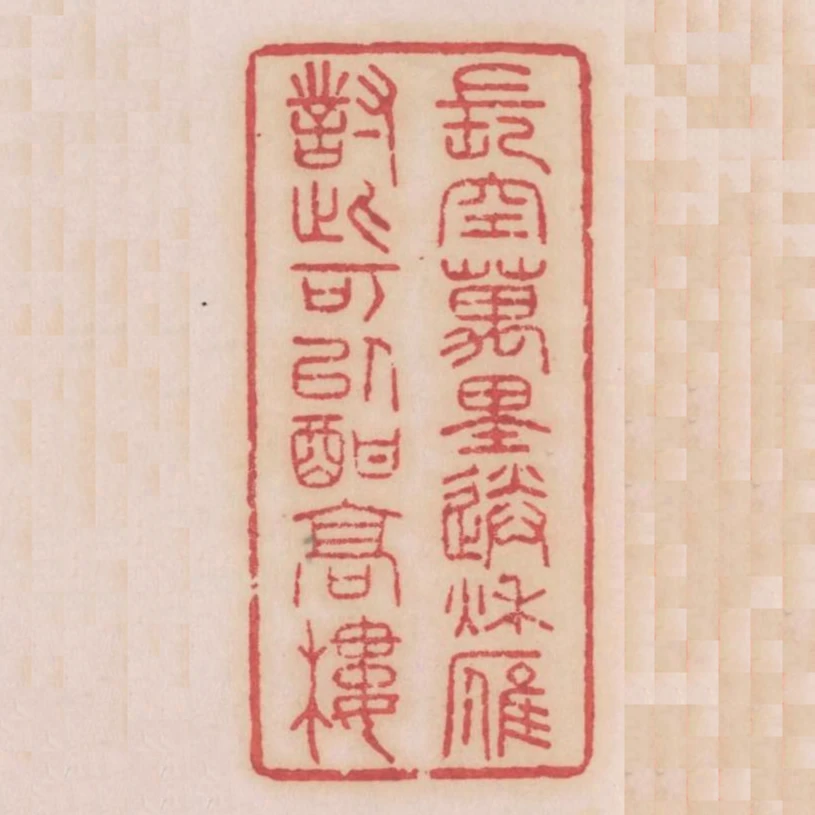 長空萬里送秌雁
對此可以酣高樓